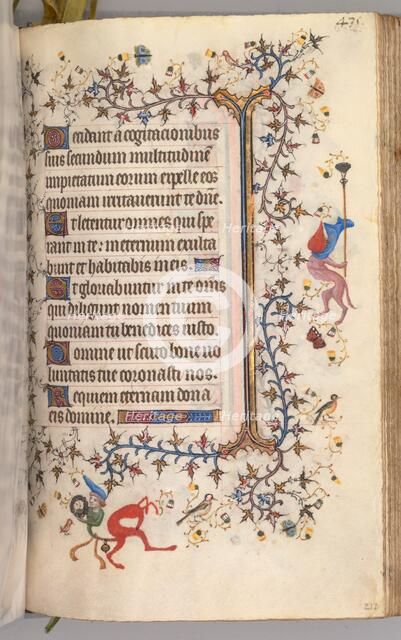 471
Decidant a cogitacionibus
suis secundum multitudinē
impietatum eorum expelle eos
quoniam irritauerunt te dn̄e.
Et letentur omnes qui spe
rant in te: in eternum exulta
bunt et habitabis in eis.
Et gloriabuntur in te om̄s
qui diligunt nomen tuum
quoniam tu benedices iusto.
Domine ut scuto bone uo
luntatis tue coronasti nos.
Requiem eternam dona
eis domine.
Heritage Heritage
212